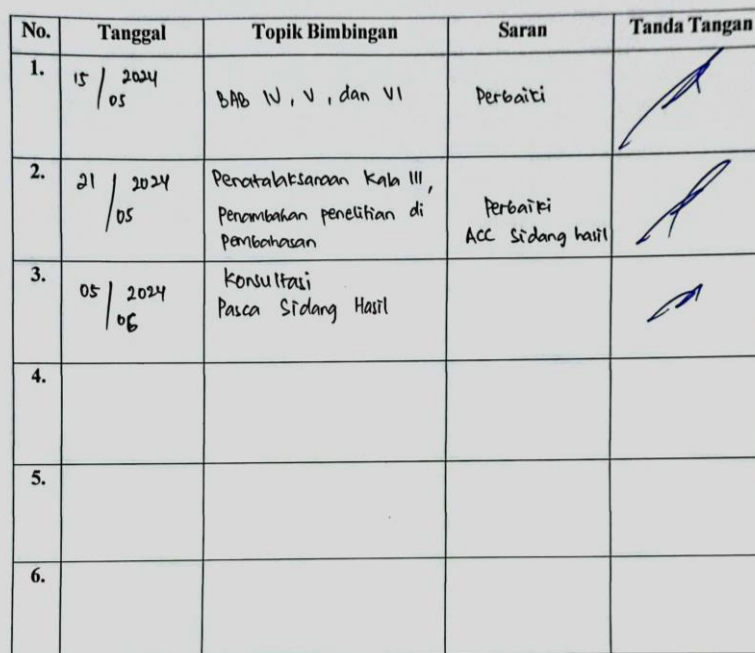 No. Tanggal Topik Bimbingan Saran Tanda Tangan
1. 15 / 05 2024 BAB IV, V, dan VI Perbaiki
2. 21 / 05 2024 Penatalaksanaan Kala III,
Penambahan penelitian di
pembahasan
Perbaiki
ACC Sidang hasil
3. 05 / 06 2024 Konsultasi
Pasca Sidang Hasil
4.
5.
6.